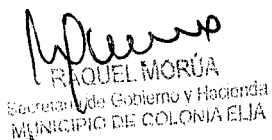 RAQUEL MORÚA
Secretaria de Gobierno y Hacienda
MUNICIPIO DE COLONIA ELIA